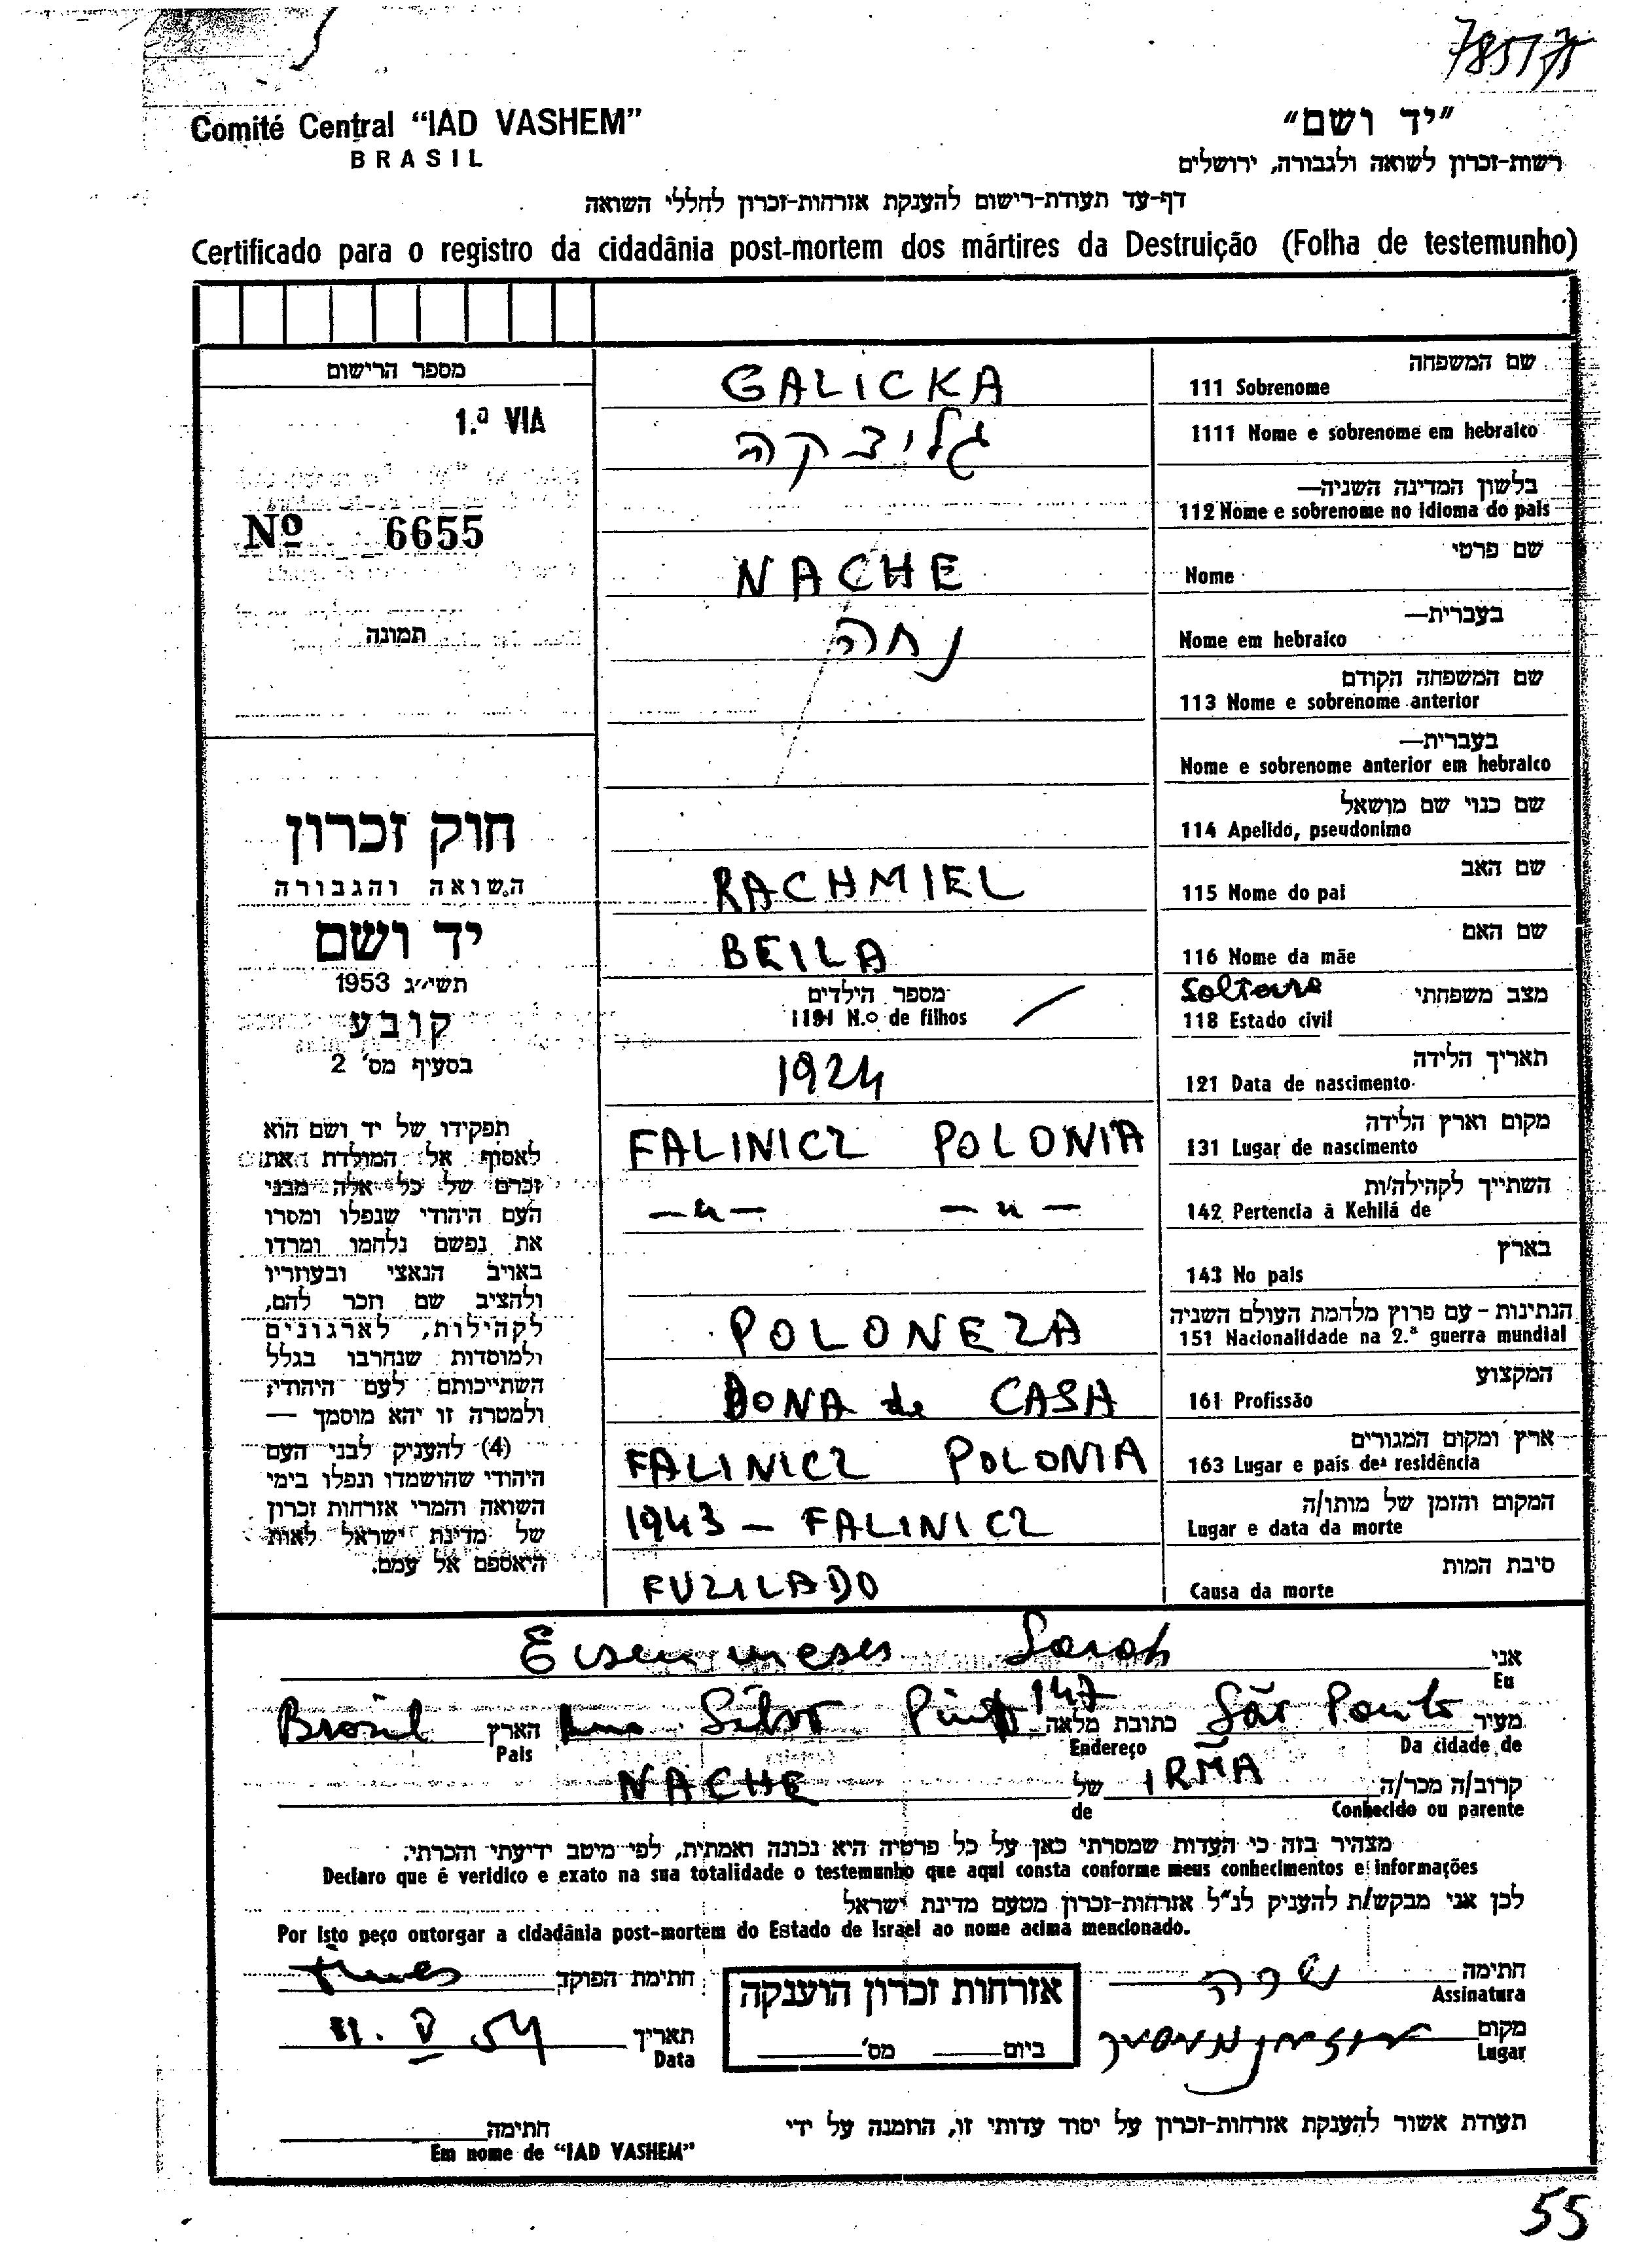 78517 75
Comité Central "IAD VASHEM"
BRASIL
"יד ושם"
רשות-זכרון לשואה ולגבורה, ירושלים
דף-עד תעודת-רישום להענקת אזרחות-זכרון לחללי השואה
Certificado para o registro da cidadânia post-mortem dos mártires da Destruição (Folha de testemunho)
מספר הרישום
1.ª VIA
Nº 6655
תמונה
חוק זכרון
השואה והגבורה
יד ושם
תשי״ג 1953
קובע
בסעיף מס' 2
תפקידו של יד ושם הוא
לאסוף אל המולדת את
זכרם של כל אלה מבני
העם היהודי שנפלו ומסרו
את נפשם נלחמו ומרדו
באויב הנאצי ובעוזריו
ולהציב שם וזכר להם,
לקהילות, לארגונים
ולמוסדות שנחרבו בגלל
השתייכותם לעם היהודי
ולמטרה זו יהא מוסמך —
(4) להעניק לבני העם
היהודי שהושמדו ונפלו בימי
השואה והמרי אזרחות זכרון
של מדינת ישראל לאות
היאספם אל עמם.
שם המשפחה
111 Sobrenome GALICKA
1111 Nome e sobrenome em hebraico גליצקה
בלשון המדינה השניה—
112 Nome e sobrenome no idioma do pais
שם פרטי
Nome NACHE
בעברית—
Nome em hebraico נחה
שם המשפחה הקודם
113 Nome e sobrenome anterior
בעברית—
Nome e sobrenome anterior em hebraico
שם כנוי שם מושאל
114 Apelido, pseudonimo
שם האב
115 Nome do pai RACHMIEL
שם האם
116 Nome da mãe BEILA
מצב משפחתי Solteira
118 Estado civil
מספר הילדים
1191 N.o de filhos
תאריך הלידה
121 Data de nascimento 1924
מקום וארץ הלידה
131 Lugar de nascimento FALINICZ POLONIA
השתייך לקהילה/ות
142 Pertencia à Kehilá de —"— —"—
בארץ
143 No pais
הנתינות - עם פרוץ מלחמת העולם השניה
151 Nacionalidade na 2.ª guerra mundial POLONEZA
המקצוע
161 Profissão DONA de CASA
ארץ ומקום המגורים
163 Lugar e pais de residência FALINICZ POLONIA
המקום והזמן של מותו/ה
Lugar e data da morte 1943 — FALINICZ
סיבת המות
Causa da morte FUZILADO
אני Sarah
Eu
מעיר São Paulo כתובת מלאה Silva Pinto 147 הארץ Brasil
Da cidade de Endereço Pais
קרוב/ה מכר/ה IRMA של NACHE
Conhecido ou parente de
מצהיר בזה כי העדות שמסרתי כאן על כל פרטיה היא נכונה ואמתית, לפי מיטב ידיעתי והכרתי.
Declaro que é veridico e exato na sua totalidade o testemunho que aqui consta conforme meus conhecimentos e informações
לכן אני מבקש/ת להעניק לנ"ל אזרחות-זכרון מטעם מדינת ישראל
Por isto peço outorgar a cidadânia post-mortem do Estado de Israel ao nome acima mencionado.
חתימה שרה
Assinatura
אזרחות זכרון הוענקה
ביום מס'
חתימת הפוקד
מקום
Lugar
תאריך
Data
תעודת אשור להענקת אזרחות-זכרון על יסוד עדותי זו, הוזמנה על ידי
חתימה
Em nome de "IAD VASHEM"
55